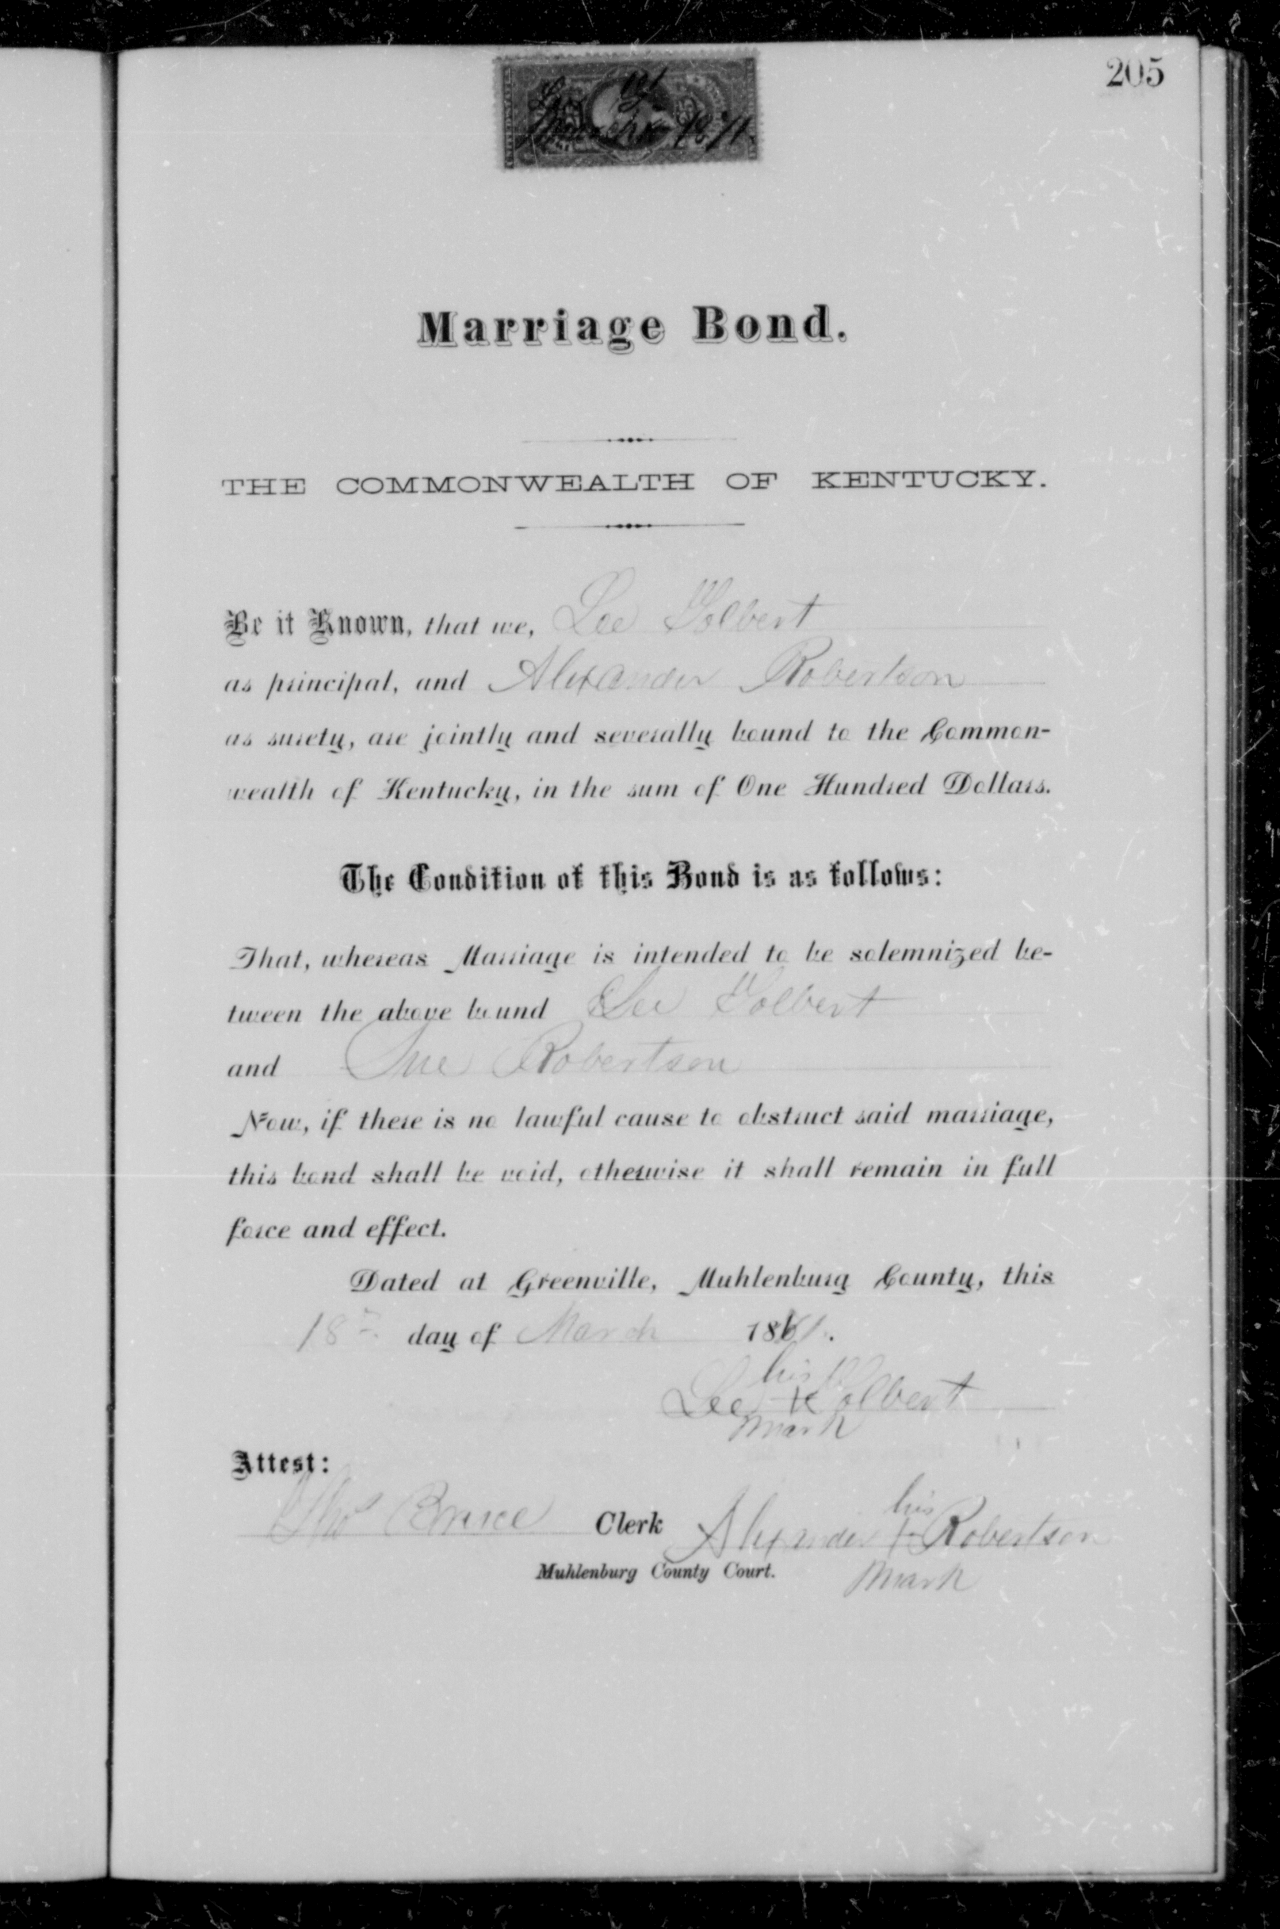 205
March 1871
Marriage Bond.
THE COMMONWEALTH OF KENTUCKY.
Be it Known, that we, Lee Tolbert
as principal, and Alexander Robertson
as surety, are jointly and severally bound to the Common-
wealth of Kentucky, in the sum of One Hundred Dollars.
The Condition of this Bond is as follows:
That, whereas Marriage is intended to be solemnized be-
tween the above bound Lee Tolbert
and Sue Robertson
Now, if there is no lawful cause to obstruct said marriage,
this bond shall be void, otherwise it shall remain in full
force and effect.
Dated at Greenville, Muhlenburg County, this
18th day of March 1871.
his
Lee X Tolbert
mark
Attest:
his
Thos Bruce Clerk Alexander X Robertson
Muhlenburg County Court. mark